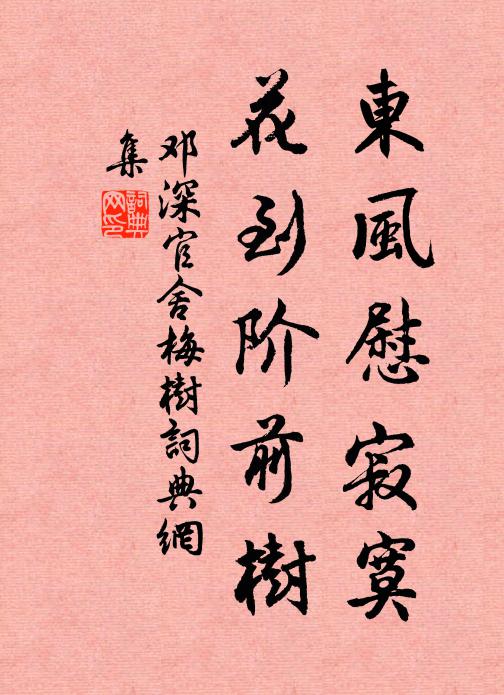 東風慰寂寞
花到阶前樹
邓深官舍梅樹詞典網
集
詞典
网印